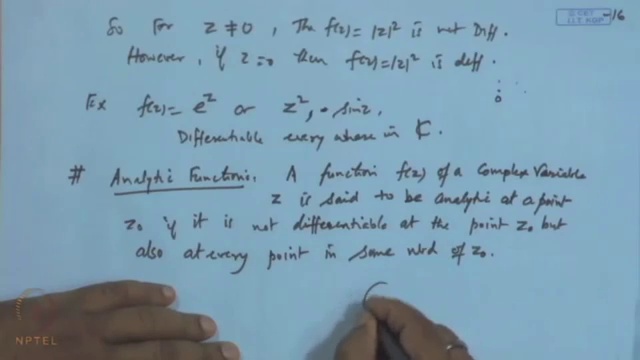 © CET
I.I.T. KGP
-16
So For z ≠ 0, The f(z) = |z|² is not Diff.
However, if z=0 then f(z)=|z|² is diff.
Ex f(z) = e^z or z², sin z,
Differentiable every where in ₵.
# Analytic Functions. A function f(z) of a Complex Variable
z is said to be analytic at a point
z₀ if it is not differentiable at the point z₀ but
also at every point in some nbd of z₀.
NPTEL